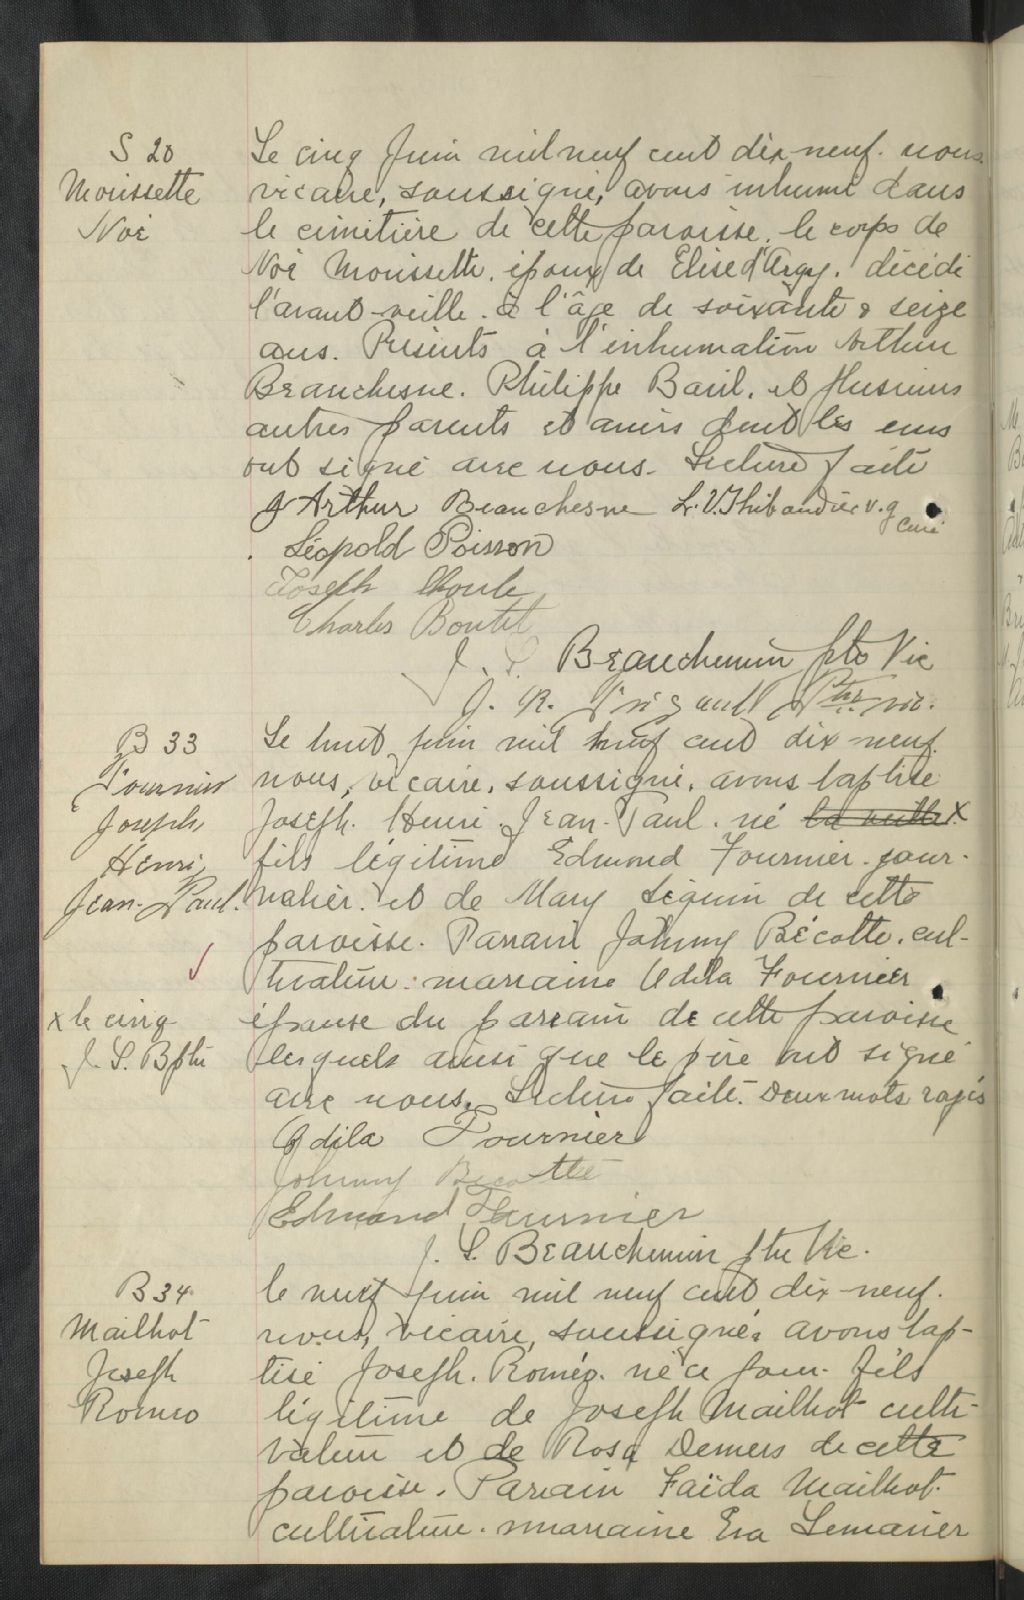 S 20
Morissette
Noé
Le cinq Juin mil neuf cent dix-neuf. nous
vicaire, soussigné, avons inhumé dans
le cimitière de cette paroisse. le corps de
Noé Morissette. époux de Elise d'Argy. décédé
l'avant-veille. à l'âge de soixante & seize
ans. Présents à l'inhumation Arthur
Beauchesne. Philippe Baril. et plusieurs
autres parents et amis dont les uns
ont signé avec nous. Lecture faite
J Arthur Beauchesne L. V. Thibaudier v. g
curé
Léopold Poisson
Joseph Houle
Charles Boutet
J. S. Beauchemin ptre Vic
J. R. Ptre vic.
B 33
Fournier
Joseph,
Henri,
Jean-Paul.
x le cinq
J. S. B ptre
Le huit juin mil neuf cent dix-neuf.
nous, vicaire, soussigné, avons baptisé
Joseph. Henri. Jean-Paul. né la veille x
fils légitime Edmond Fournier. jour-
nalier. et de Mary Séguin de cette
paroisse. Parrain Johnny Bécotte. cul-
tivateur. marraine Odila Fournier
épouse du parrain de cette paroisse
lesquels ainsi que le père ont signé
avec nous. Lecture faite. Deux mots rayés
Odila Fournier
Johnny Becotte
Edmond Fournier
J. S. Beauchemin ptre Vic.
B 34
Mailhot
Joseph
Romeo
le neuf juin mil neuf cent dix-neuf.
nous, vicaire, soussigné, avons bap-
tisé Joseph. Roméo. né ce jour. fils
légitime de Joseph Mailhot culti-
vateur et de Rosa Demers de cette
paroisse. Parrain Faïda Mailhot.
cultivateur. marraine Eva Lemarier